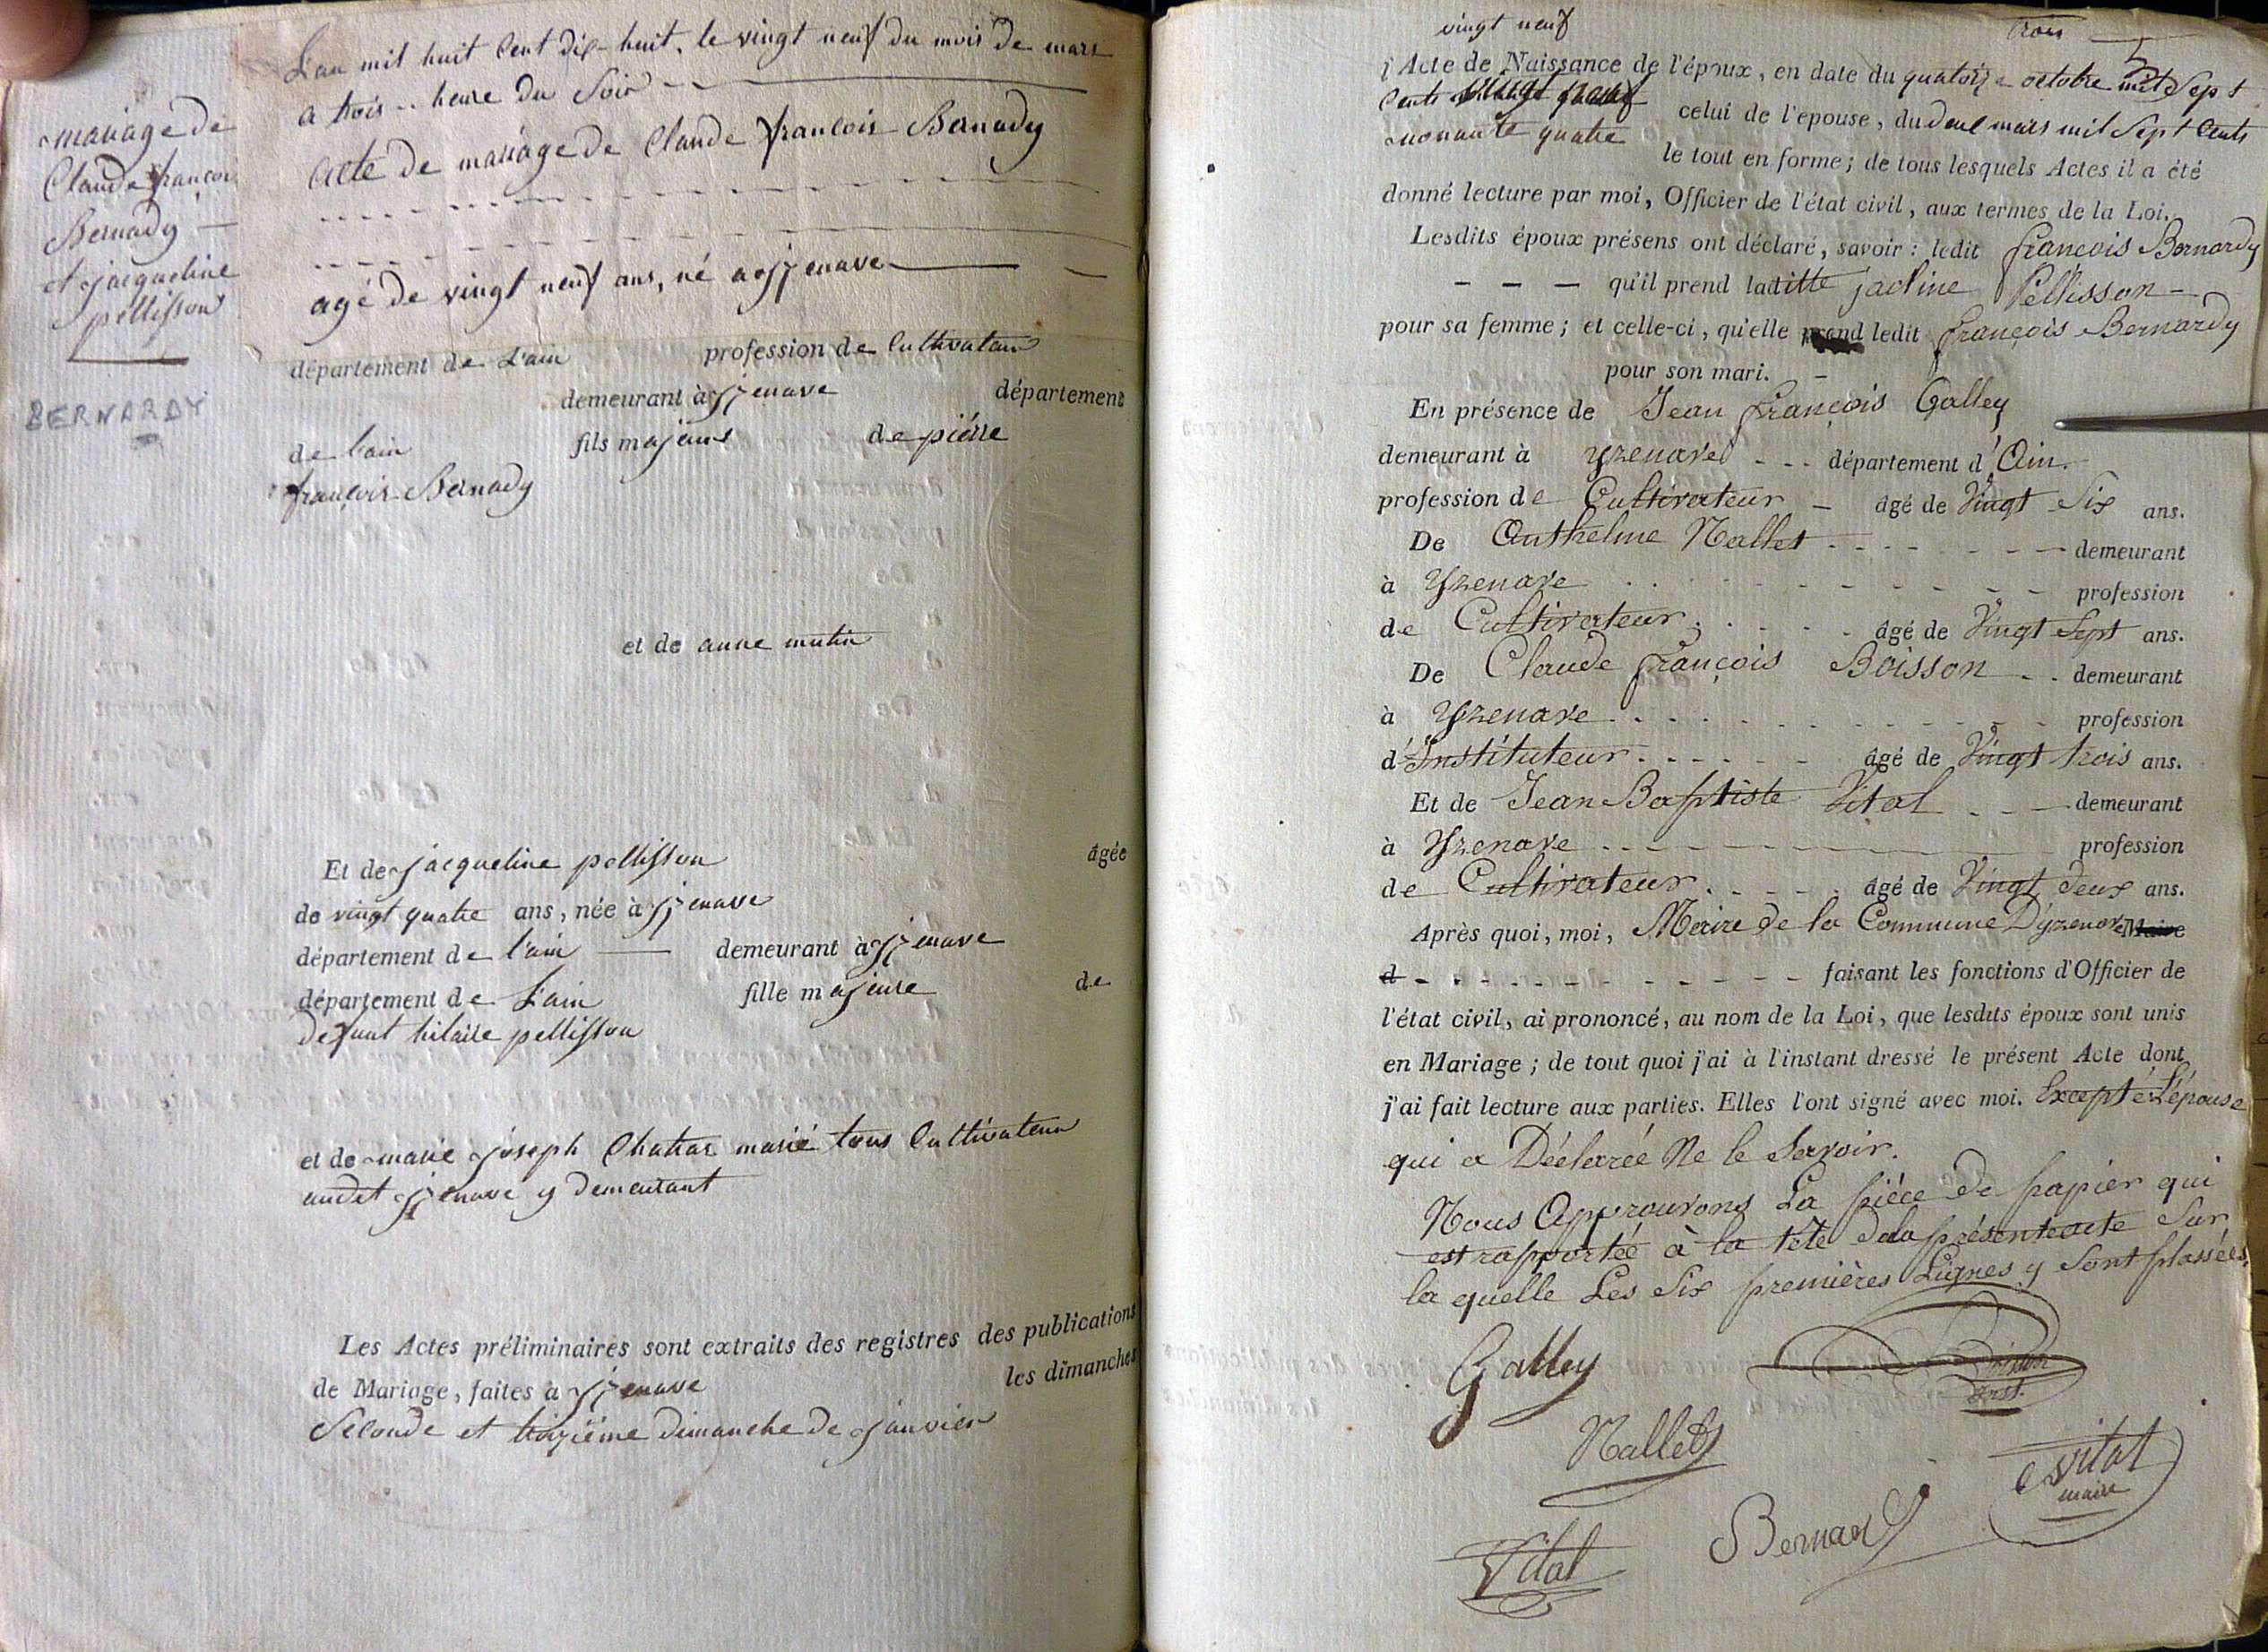 mariage de
Claude françois
Bernady
et jacqueline
pellisson
BERNARDY
L'an mil huit Cent dix-huit, le vingt neuf du mois de mars
a trois heure du Soir
acte de mariage de Claude françois Bernady
agé de vingt neuf ans, né a yzenave
département de L'ain profession de Cultivateur
demeurant à yzenave département
de l'ain fils majeur de piérre
françois Bernady
et de anne mutin
Et de jacqueline pellisson âgée
de vingt quatre ans, née à yzenave
département de l'ain demeurant à yzenave
département de L'ain fille majeure de
defunt hilaire pellisson
et de marie joseph marié tous Cultivateur
audit yzenave y demeurant
Les Actes préliminaires sont extraits des registres des publications
de Mariage, faites a yzenave les dimanches
Seconde et troizième dimanche de janvier
vingt neuf trois
Acte de Naissance de l'époux, en date du quatorze octobre mil Sept
Cents
celui de l'epouse, du deux mars mil Sept Cents
nonante quatre le tout en forme; de tous lesquels Actes il a été
donné lecture par moi, Officier de l'état civil, aux termes de la Loi.
Lesdits époux présens ont déclaré, savoir: ledit françois Bernardy
qu'il prend laditte jacline Pellisson
pour sa femme; et celle-ci, qu'elle prend ledit françois Bernardy
pour son mari.
En présence de Jean françois Galley
demeurant à yzenave département d'Ain.
profession de Cultivateur âgé de Vingt Six ans.
De Anthelme Nallet demeurant
à Yzenave profession
de Cultivateur âgé de Vingt Sept ans.
De Claude françois Boisson demeurant
à Yzenave profession
d'Instituteur âgé de Vingt trois ans.
Et de Jean Baptiste Vital demeurant
à Yzenave profession
de Cultivateur âgé de Vingt deux ans.
Après quoi, moi, Maire de la Commune D'yzenave Maire
d faisant les fonctions d'Officier de
l'état civil, ai prononcé, au nom de la Loi, que lesdits époux sont unis
en Mariage; de tout quoi j'ai à l'instant dressé le présent Acte dont
j'ai fait lecture aux parties. Elles l'ont signé avec moi. Excepté L'épouse
qui a Déclarée Ne le Savoir.
Nous Approuvons La piéce de papier qui
est rapportée à la tête dela présente acte Sur
la quelle Les Six premières Lignes y Sont plassées,
Galley
Nallet
Vital
maire
Bernardy
Vital